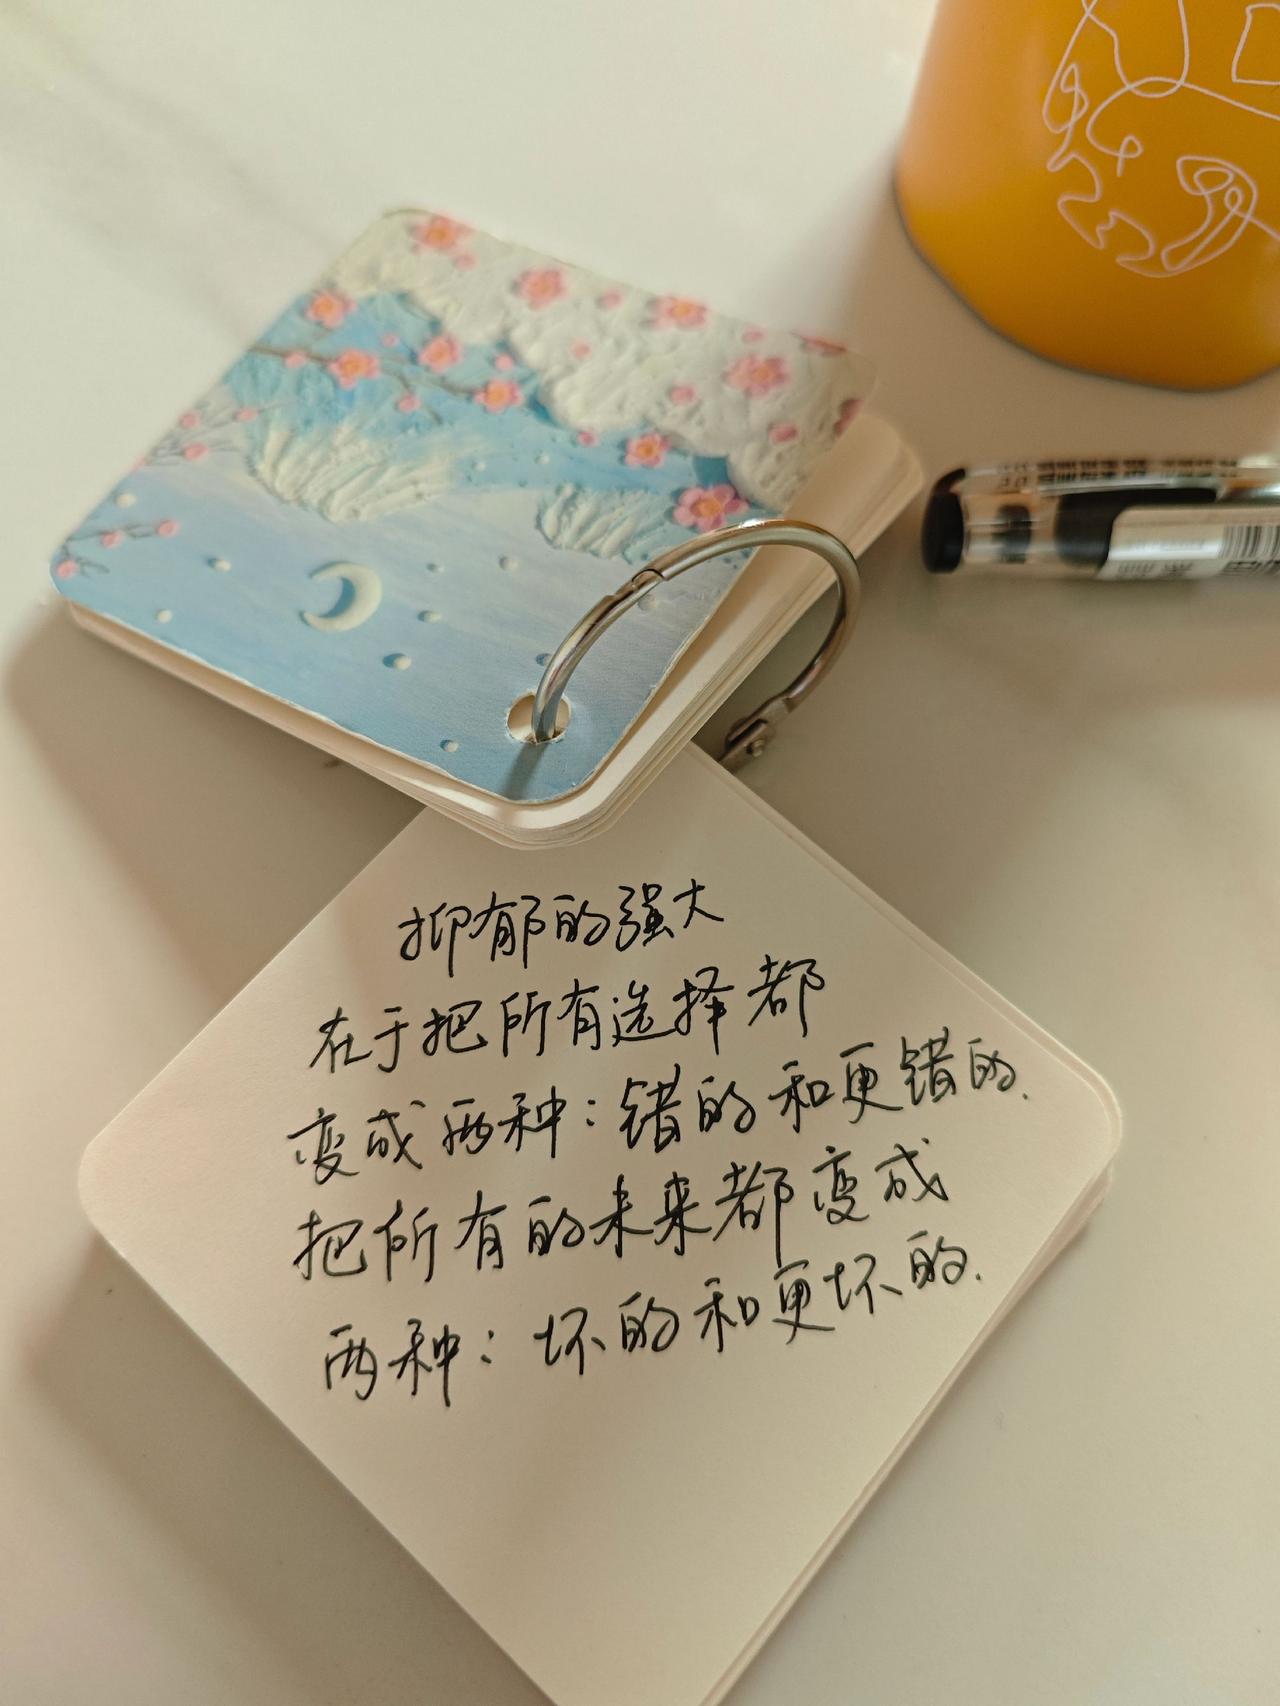 抑郁的强大
在于把所有选择都
变成两种：错的和更错的.
把所有的未来都变成
两种：坏的和更坏的.